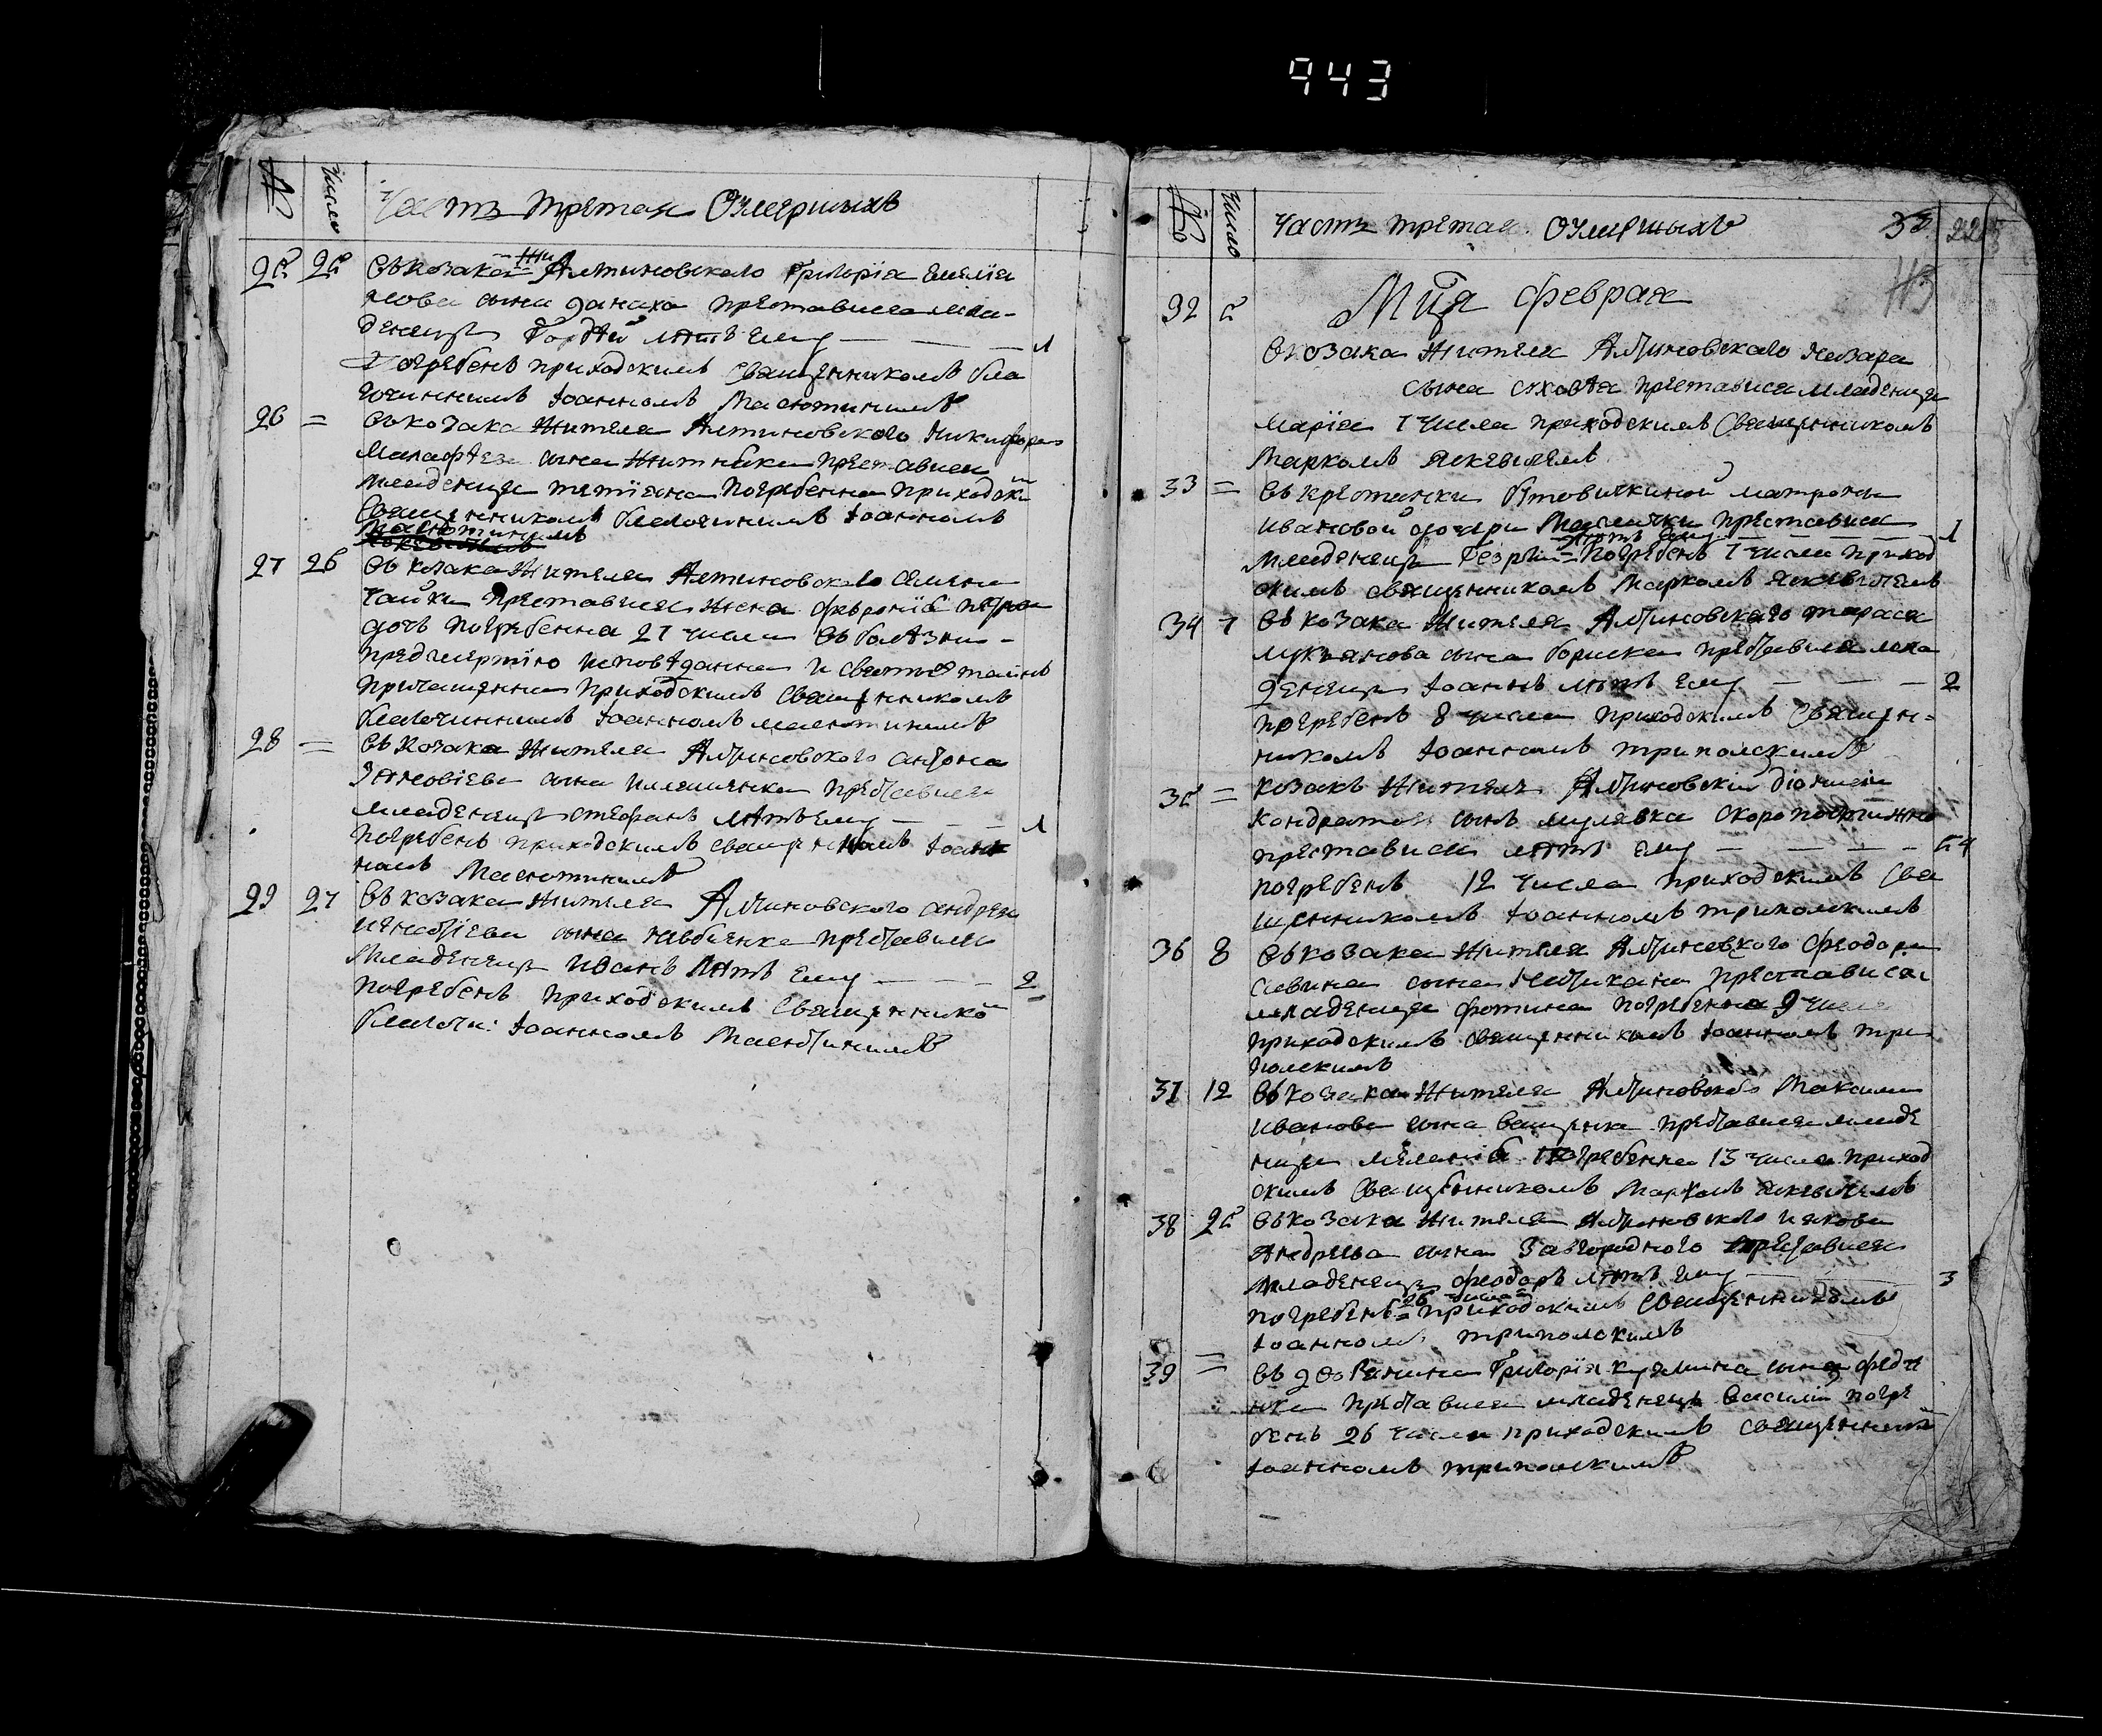 943
№ Число Часть третая Оумершыхъ
25 25 Въ козака жи Алтиновского Григорїя Емелїа
нова сына преставися мла-
денецъ Гордѣй лѣтъ ему — — — 1
Погребенъ приходскимъ Священникомъ бла
гочиннимъ Іоанномъ Масютинимъ
26 = Въ козака Жителя Алтиновского Никифора
Малафѣева сына Житника преставися
младеница тетїяна погребенна приходски
Священникомъ благочинимъ Іоанномъ
Масютинимъ
27 26 Въ козака Жителя Алтиновского Семена
Чайки преставися жена феврониа петрова
дочь погребенна 27 числа въ болѣзни
предсмертїю исповѣданна и святыхъ таинъ
причащенна приходскимъ священникомъ
благочиннимъ Іоанномъ масютинимъ
28 = Въ козака Жителя Алтиновского антона
Зѣновїева сына преставися
младенецъ стефанъ лѣтъ ему — — — 1
погребенъ приходскимъ священникомъ Іоан
номъ Масютинимъ
29 27 Въ козака жителя Алтиновского андрея
игнатїева сына преставися
младенецъ иванъ лѣтъ ему — — — 2
погребенъ приходскимъ Священнико
благочи: Іоанномъ Масютинимъ
№ Число Часть третая Оумершыхъ
Мця февраля
32 5
В козака жителя Алтиновского Назара
сына преставися младеница
марїя 7 числа приходскимъ Священникомъ
Маркомъ Яскевичемъ
33 = Въ крестянки Бутовичкиной матроны
ивановой дочери преставися
лѣтъ ему — — — 1
младенецъ Георгій погребенъ 7 числа приход
скимъ священникомъ Маркомъ Яскевичемъ
34 7 Въ козака жителя Алтиновского тараса
лукъянова сына бориска преставися мла
денецъ Іоаннъ лѣтъ ему — — — 2
погребенъ 8 числа приходскимъ Священ-
никомъ Іоанномъ триполскимъ
35 = козакъ Житель Алтиновскій діонисій
Кондратовъ сынъ мулявка скоропостижно
преставися лѣтъ ему — — — 54
погребенъ 12 числа приходскимъ Свя
щенникомъ Іоанномъ триполскимъ
36 8 Въ козака жителя Алтиновского феодора
Савина сына преставися
младеница фотина погребенна 9 числа
приходскимъ священникомъ Іоанномъ три
полскимъ
37 12 Въ козака жителя Алтиновского Максима
иванова сына ващенка преставися младе
ница меланіа погребенна 13 числа приход
скимъ Священникомъ Маркомъ Яскевичемъ
38 25 Въ козака жителя Алтиновского иякова
Андреева сына Завгородного преставися
младенецъ феодоръ лѣтъ ему — — 3
26 числа
погребенъ = приходскимъ Священникомъ
Іоанномъ триполскимъ
39 = Въ дворянина Григорїя кузмина сына феде
нка преставися младенецъ василій погре
бенъ 26 числа приходскимъ священникомъ
Іоанномъ триполскимъ